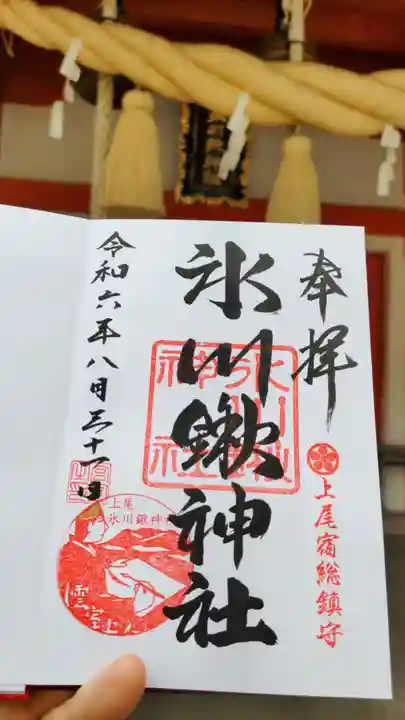 奉拝
上尾宿総鎮守
氷川鍬神社
令和六年八月三十一日
上尾
氷川鍬神
雲室上人